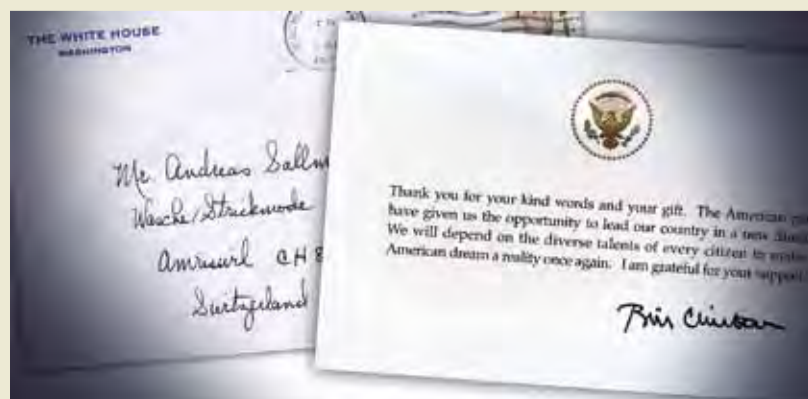 THE WHITE HOUSE
WASHINGTON
Mr. Andreas
Wasche/Strickmode
Amriswil CH 8
Switzerland
Thank you for your kind words and your gift. The American
have given us the opportunity to lead our country in a new
We will depend on the diverse talents of every citizen to make
American dream a reality once again. I am grateful for your support
Bill Clinton